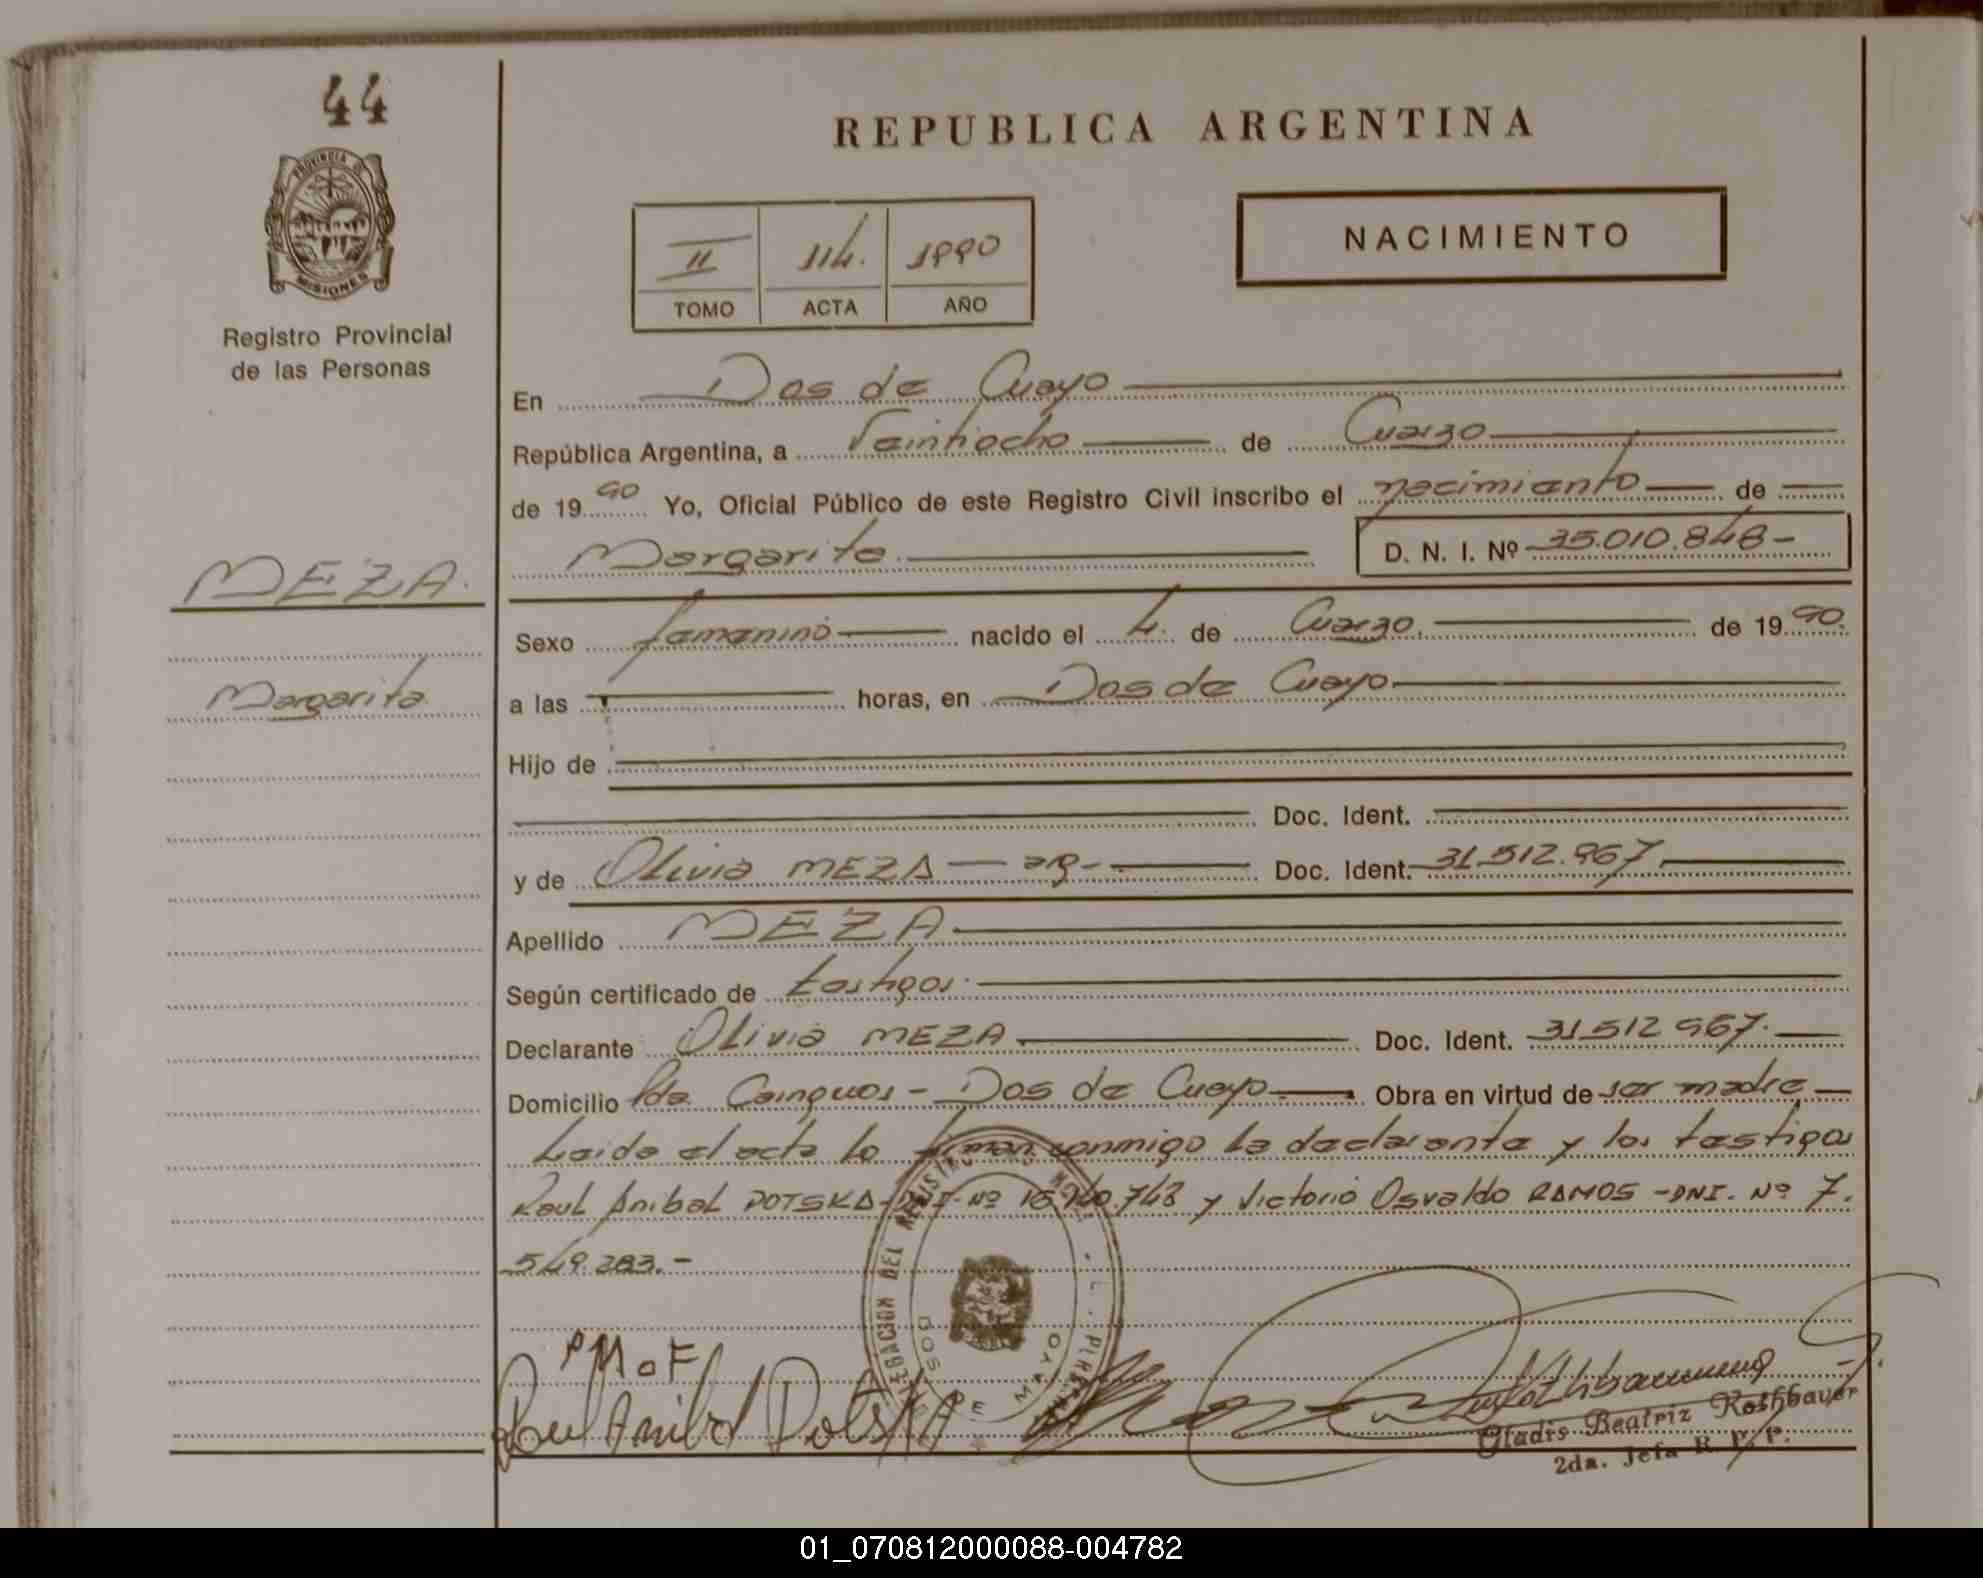 44
PROVINCIA DE
MISIONES
Registro Provincial
de las Personas
REPUBLICA ARGENTINA
II 114. 1990
TOMO ACTA AÑO
NACIMIENTO
En Dos de Mayo
República Argentina, a Veintiocho de Marzo
de 1990 Yo, Oficial Público de este Registro Civil inscribo el nacimiento de
Margarita. D. N. I. Nº 35.010.848-
MEZA.
Margarita
Sexo femenino nacido el 4. de Marzo. de 1990.
a las horas, en Dos de Mayo
Hijo de
Doc. Ident.
y de Olivia MEZA - arg- Doc. Ident. 31.512.967
Apellido MEZA
Según certificado de testigos.
Declarante Olivia MEZA Doc. Ident. 31512967.
Domicilio Pda. Cainguas - Dos de Mayo Obra en virtud de ser madre
Leida el acta la firman conmigo la declarante y los testigos
Raul Anibal DOTSKA-DNI-Nº 16.140.743 y Victorio Osvaldo RAMOS -DNI. Nº 7.
549.283.-
DOS DE MAYO
Raul Anibal Dotska
Gladis Beatriz Rothbauer
2da. Jefa R. P. P.
01_070812000088-004782